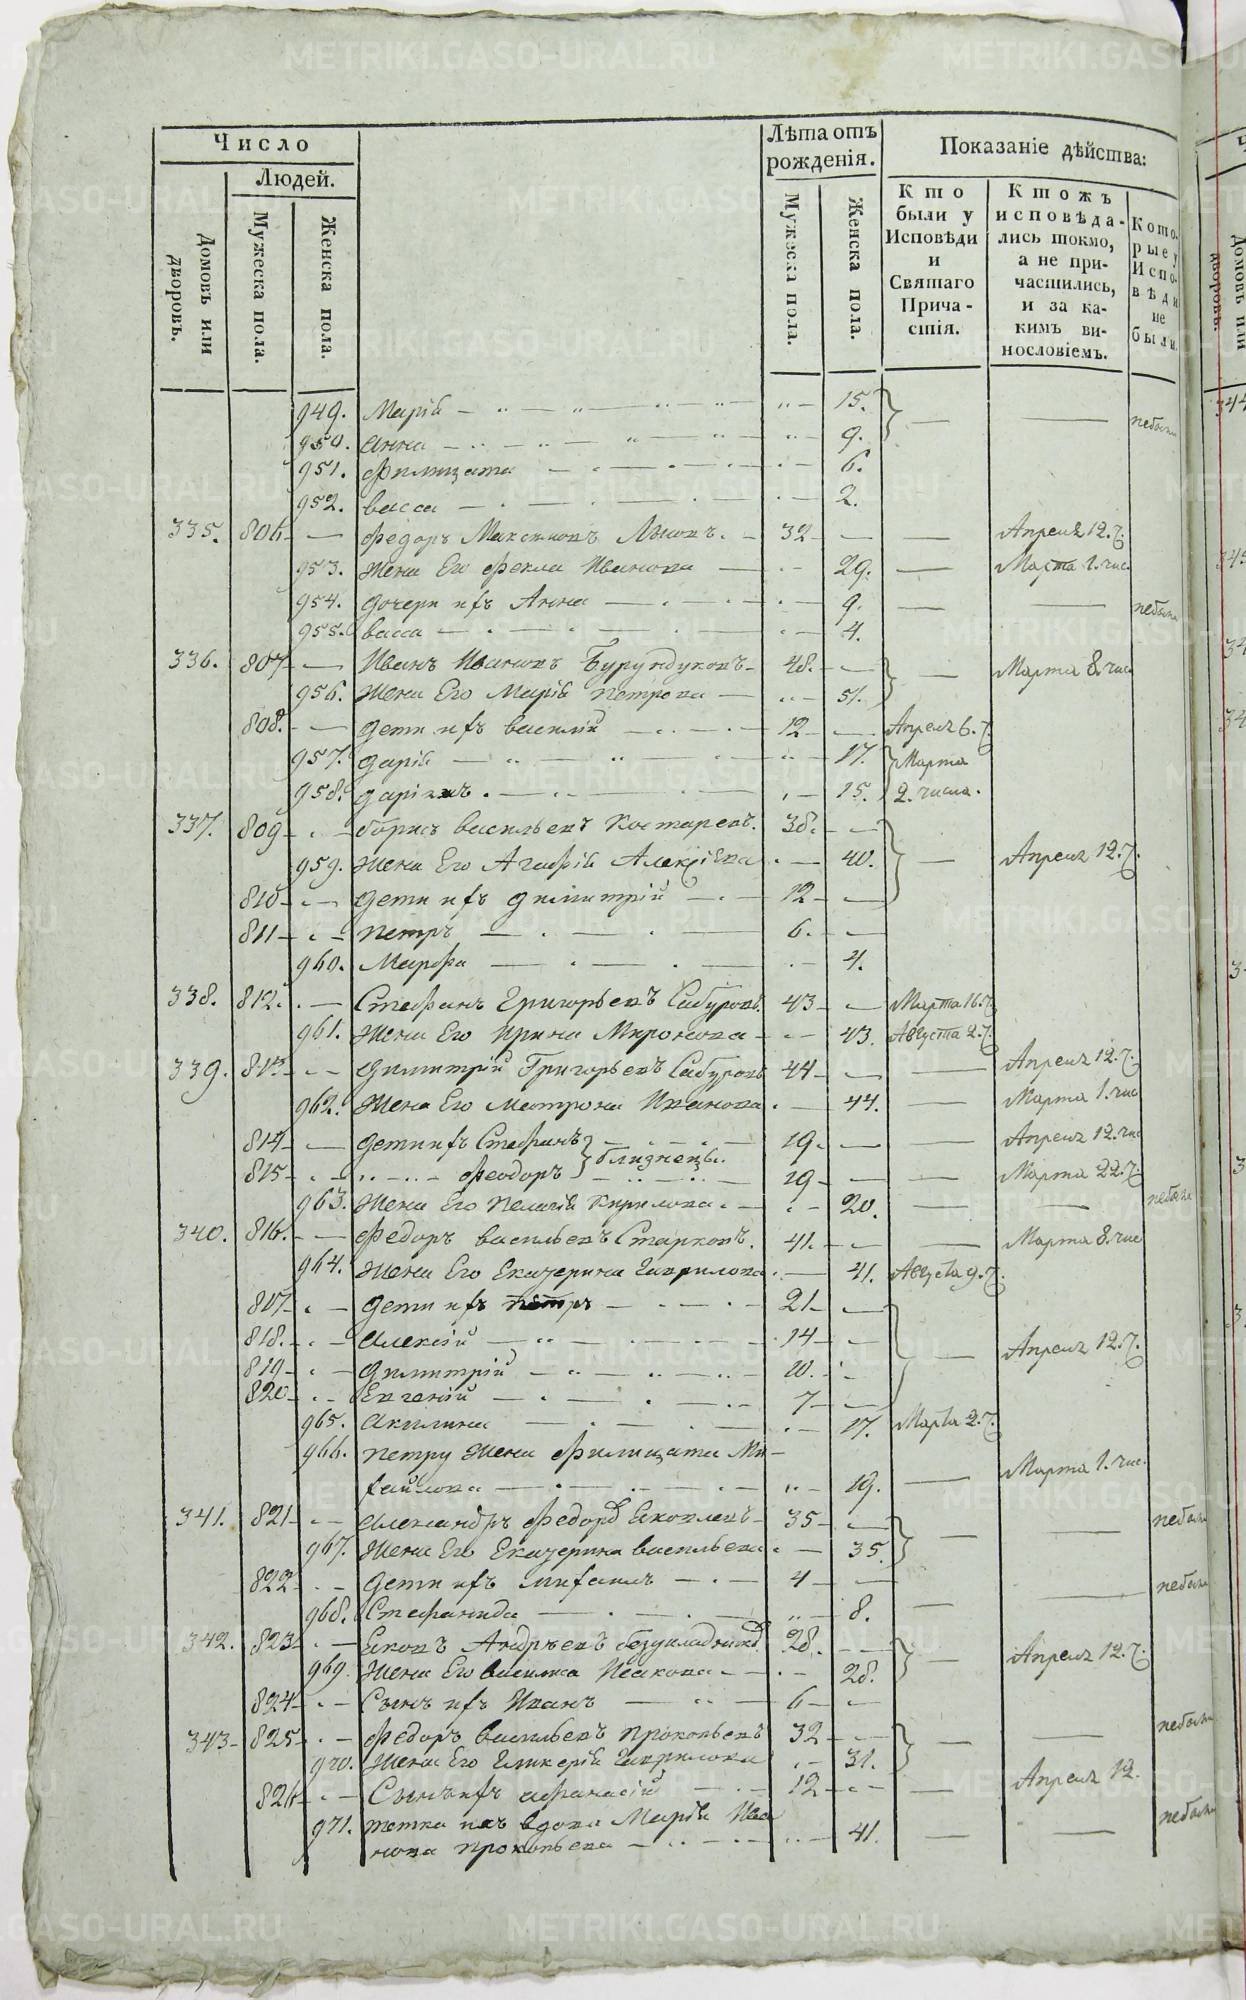 Число
Людей.
Домовъ или дворовъ.
Мужеска пола.
Женска пола.
Лѣта отъ рожденія.
Мужеска пола.
Женска пола.
Показаніе дѣйства:
Кто были у Исповѣди и Святаго Причастія.
Ктожъ исповѣдались токмо, а не причастились, и за какимъ винословіемъ.
Которые у Исповѣди не были.
949. Марія 15. небыли
950. Анна 9.
951. Филицата 6.
952. Васса 2.
335. 806 Федоръ Максимовъ Лыковъ. 32 Апреля 12.
953. Жена Его Фекла Иванова 29. Марта 1. чис
954. Дочери ихъ Анна 9. небыли
955. Васса 4.
336. 807 Иванъ Ивановъ Бурундуковъ 48. Марта 8. чис
956. Жена Его Марія Петрова 51.
808. Дети ихъ Василій 12 Апреля 6.
957. Дарія 17. Марта
958. 15. 2. числа.
337. 809 Борисъ Васильевъ Костаревъ. 38.
959. Жена Его Агафія Алексіева 40. Апреля 12.
810 Дети ихъ Димитрій 12
811 Петръ 6.
960. Марфа 4.
338. 812. Стефанъ Григорьевъ Сабуровъ. 43 Марта 16.
961. Жена Его Ирина Миронова 43. Августа 2.
339. 813. Димитрій Григорьевъ Сабуровъ 44 Апреля 12.
962. Жена Его Матрона Иванова 44. Марта 1. чис
814 Дети ихъ Стефанъ 19. Апреля 12. чис
815 Феодоръ } близнецы. 19 Марта 22.
963. Жена Его Пелагія Кирилова 20. небыла
340. 816. Федоръ Васильевъ Старковъ. 41. Марта 8. чис
964. Жена Его Екатерина Гаврилова 41. Августа 9.
817 Дети ихъ Петръ 21
818. Алексій 14 Апреля 12.
819 Димитрій 10.
820 Евгеній 7
965. Акилина 17. Марта 2.
966. Петру Жена Филицата Ми-
хайлова 19. Марта 1. чис.
341. 821 Александръ Федоровъ Яковлевъ 35 небыли
967. Жена Его Екатерина Васильева 35.
822 Дети ихъ Михаилъ 4 небыли
968. Стефанида 8.
342. 823 Яковъ Андръевъ 28. Апреля 12.
969. Жена Его Василиса Исакова 28.
824 Сынъ ихъ Иванъ 6
343 825 Федоръ Васильевъ Прокопьевъ 32 небыли
970. Жена Его Гликерія Гаврилова 31.
826 Сынъ ихъ Афанасій 12 Апреля 12.
971. тетка ихъ вдова Марія Ива
нова Прокопьева 41. небыла
METRIKI.GASO-URAL.RU